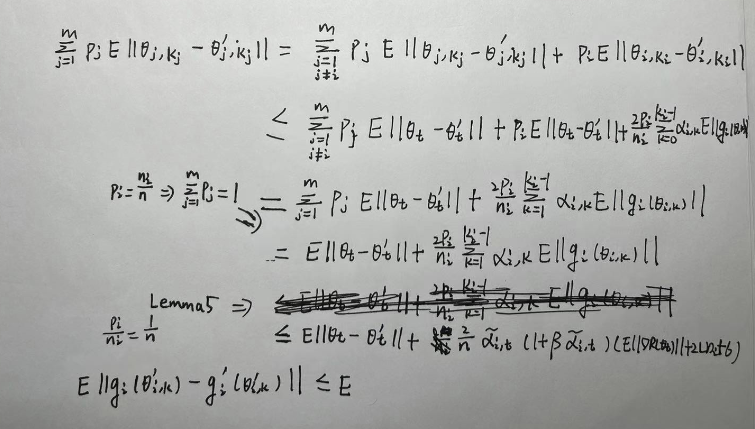 \sum_{j=1}^{m} P_j E||θ_{j,K_j} - θ'_{j,K_j}|| = \sum_{j=1, j≠i}^{m} P_j E||θ_{j,K_j} - θ'_{j,K_j}|| + P_i E||θ_{i,K_i} - θ'_{i,K_i}||
≤ \sum_{j=1, j≠i}^{m} P_j E||θ_t - θ'_t|| + P_i E||θ_t - θ'_t|| + \frac{2P_i}{n_i} \sum_{k=0}^{K_i-1} α_{i,k} E||g_i(θ_{i,k})||
P_i = \frac{n_i}{n} ⇒ \sum_{j=1}^{m} P_j = 1 ⇒ = \sum_{j=1}^{m} P_j E||θ_t - θ'_t|| + \frac{2P_i}{n_i} \sum_{k=1}^{K_i-1} α_{i,k} E||g_i(θ_{i,k})||
= E||θ_t - θ'_t|| + \frac{2P_i}{n_i} \sum_{k=1}^{K_i-1} α_{i,k} E||g_i(θ_{i,k})||
Lemma5 ⇒
\frac{P_i}{n_i} = \frac{1}{n} ≤ E||θ_t - θ'_t|| + \frac{2}{n} \tilde{α}_{i,t} (1+β\tilde{α}_{i,t}) (E||∇R(θ_t)|| + 2LD_i + σ)
E||g_i(θ'_{i,k}) - g'_i(θ'_{i,k})|| ≤ E